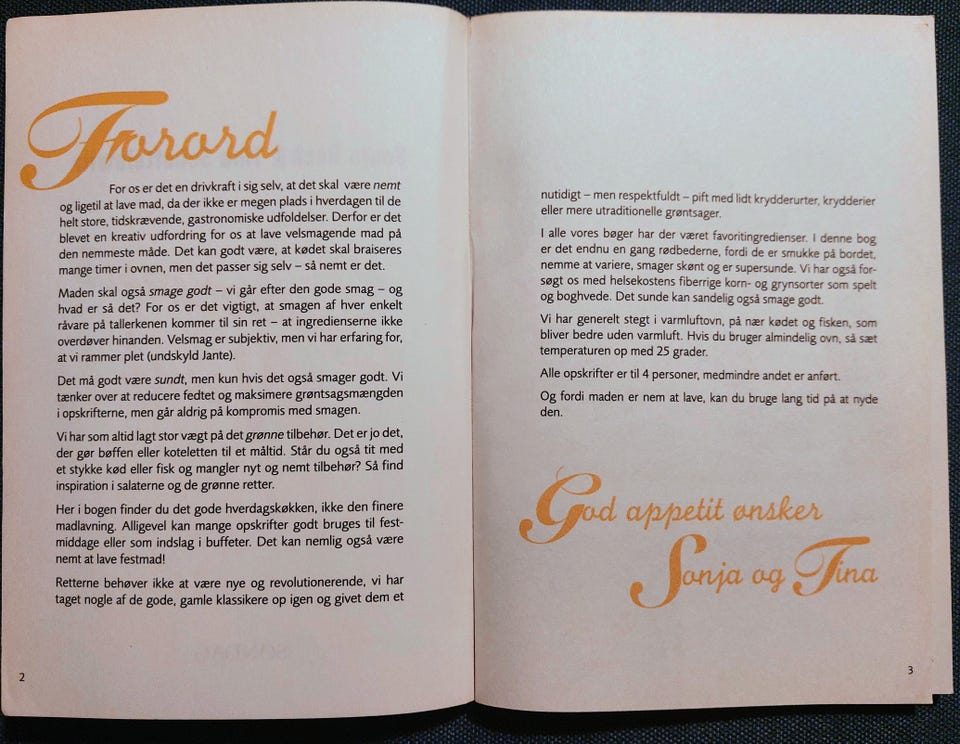 Forord
For os er det en drivkraft i sig selv, at det skal være nemt
og ligetil at lave mad, da der ikke er megen plads i hverdagen til de
helt store, tidskrævende, gastronomiske udfoldelser. Derfor er det
blevet en kreativ udfordring for os at lave velsmagende mad på
den nemmeste måde. Det kan godt være, at kødet skal braiseres
mange timer i ovnen, men det passer sig selv – så nemt er det.
Maden skal også smage godt – vi går efter den gode smag – og
hvad er så det? For os er det vigtigt, at smagen af hver enkelt
råvare på tallerkenen kommer til sin ret – at ingredienserne ikke
overdøver hinanden. Velsmag er subjektiv, men vi har erfaring for,
at vi rammer plet (undskyld Jante).
Det må godt være sundt, men kun hvis det også smager godt. Vi
tænker over at reducere fedtet og maksimere grøntsagsmængden
i opskrifterne, men går aldrig på kompromis med smagen.
Vi har som altid lagt stor vægt på det grønne tilbehør. Det er jo det,
der gør bøffen eller koteletten til et måltid. Står du også tit med
et stykke kød eller fisk og mangler nyt og nemt tilbehør? Så find
inspiration i salaterne og de grønne retter.
Her i bogen finder du det gode hverdagskøkken, ikke den finere
madlavning. Alligevel kan mange opskrifter godt bruges til fest-
middage eller som indslag i buffeter. Det kan nemlig også være
nemt at lave festmad!
Retterne behøver ikke at være nye og revolutionerende, vi har
taget nogle af de gode, gamle klassikere op igen og givet dem et
2
nutidigt – men respektfuldt – pift med lidt krydderurter, krydderier
eller mere utraditionelle grøntsager.
I alle vores bøger har der været favoritingredienser. I denne bog
er det endnu en gang rødbederne, fordi de er smukke på bordet,
nemme at variere, smager skønt og er supersunde. Vi har også for-
søgt os med helsekostens fiberrige korn- og grynsorter som spelt
og boghvede. Det sunde kan sandelig også smage godt.
Vi har generelt stegt i varmluftovn, på nær kødet og fisken, som
bliver bedre uden varmluft. Hvis du bruger almindelig ovn, så sæt
temperaturen op med 25 grader.
Alle opskrifter er til 4 personer, medmindre andet er anført.
Og fordi maden er nem at lave, kan du bruge lang tid på at nyde
den.
God appetit ønsker
Sonja og Tina
3